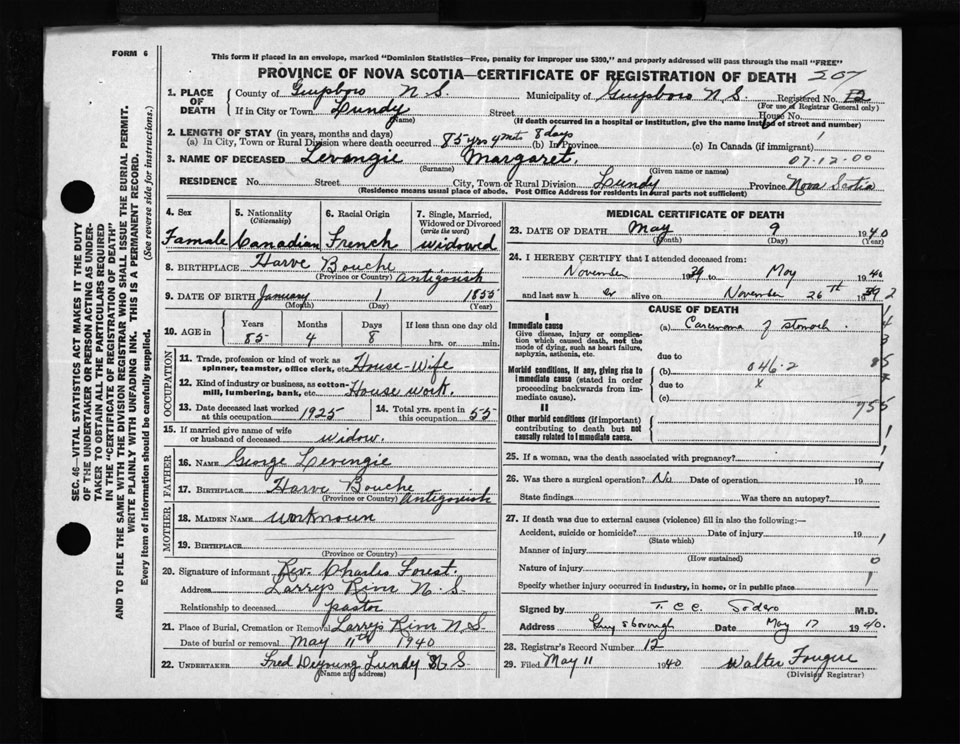 FORM 6
This form if placed in an envelope, marked "Dominion Statistics—Free, penalty for improper use $300," and properly addressed will pass through the mail "FREE"
PROVINCE OF NOVA SCOTIA—CERTIFICATE OF REGISTRATION OF DEATH 207
1. PLACE OF DEATH County of Guysboro N.S. Municipality of Guysboro N.S. Registered No. 12
(For use of Registrar General only)
If in City or Town Lundy Street House No.
(Name) (If death occurred in a hospital or institution, give the name instead of street and number)
2. LENGTH OF STAY (in years, months and days)
(a) In City, Town or Rural Division where death occurred 85 yrs 4 mts 8 days (b) In Province (c) In Canada (if immigrant)
3. NAME OF DECEASED Levangie Margaret. 07-12-00
(Surname) (Given name or names)
RESIDENCE No. Street City, Town or Rural Division Lundy Province Nova Scotia
(Residence means usual place of abode. Post Office Address for residents in rural parts not sufficient)
4. Sex Famale
5. Nationality (Citizenship) Canadian
6. Racial Origin French
7. Single, Married, Widowed or Divorced (write the word) Widowed
8. BIRTHPLACE Harve Bouche Antigonish
(Province or Country)
9. DATE OF BIRTH January 1 1855
(Month) (Day) (Year)
10. AGE in Years 85 Months 4 Days 8 If less than one day old hrs. or min.
OCCUPATION
11. Trade, profession or kind of work as spinner, teamster, office clerk, etc. House-Wife
12. Kind of industry or business, as cotton-mill, lumbering, bank, etc. House work.
13. Date deceased last worked at this occupation 1925 14. Total yrs. spent in this occupation 55
15. If married give name of wife or husband of deceased widow.
FATHER
16. NAME George Levengie
17. BIRTHPLACE Harve Bouche Antigonish
(Province or Country)
MOTHER
18. MAIDEN NAME unknown
19. BIRTHPLACE
(Province or Country)
20. Signature of informant Rev. Charles Forest.
Address Larrys River N.S.
Relationship to deceased pastor
21. Place of Burial, Cremation or Removal Larrys River N.S.
Date of burial or removal May 11th 1940
22. UNDERTAKER Fred Deyoung Lundy N S
(Name and address)
MEDICAL CERTIFICATE OF DEATH
23. DATE OF DEATH May 9 1940
(Month) (Day) (Year)
24. I HEREBY CERTIFY that I attended deceased from:
November 1939 to May 1940
and last saw her alive on November 26th 1939
CAUSE OF DEATH
I
Immediate cause
Give disease, injury or complication which caused death, not the mode of dying, such as heart failure, asphyxia, asthenia, etc.
(a) Carcinoma of stomach.
due to
Morbid conditions, if any, giving rise to immediate cause (stated in order proceeding backwards from immediate cause).
(b) 046.2
due to x
(c)
85
755
II
Other morbid conditions (if important) contributing to death but not causally related to immediate cause.
25. If a woman, was the death associated with pregnancy?
26. Was there a surgical operation? No Date of operation 19
State findings Was there an autopsy?
27. If death was due to external causes (violence) fill in also the following:—
Accident, suicide or homicide? Date of injury 19
(State which)
Manner of injury
(How sustained)
Nature of injury
Specify whether injury occurred in industry, in home, or in public place
Signed by T.C.C. Sodero M.D.
Address Guysborough Date May 17 1940.
28. Registrar's Record Number 12
29. Filed May 11 1940 Walter Fougere
(Division Registrar)
SEC. 46—VITAL STATISTICS ACT MAKES IT THE DUTY
OF THE UNDERTAKER OR PERSON ACTING AS UNDER-
TAKER TO OBTAIN ALL THE PARTICULARS REQUIRED
IN THE "CERTIFICATE OF REGISTRATION OF DEATH"
AND TO FILE THE SAME WITH THE DIVISION REGISTRAR WHO SHALL ISSUE THE BURIAL PERMIT.
WRITE PLAINLY WITH UNFADING INK. THIS IS A PERMANENT RECORD.
Every item of information should be carefully supplied. (See reverse side for instructions.)